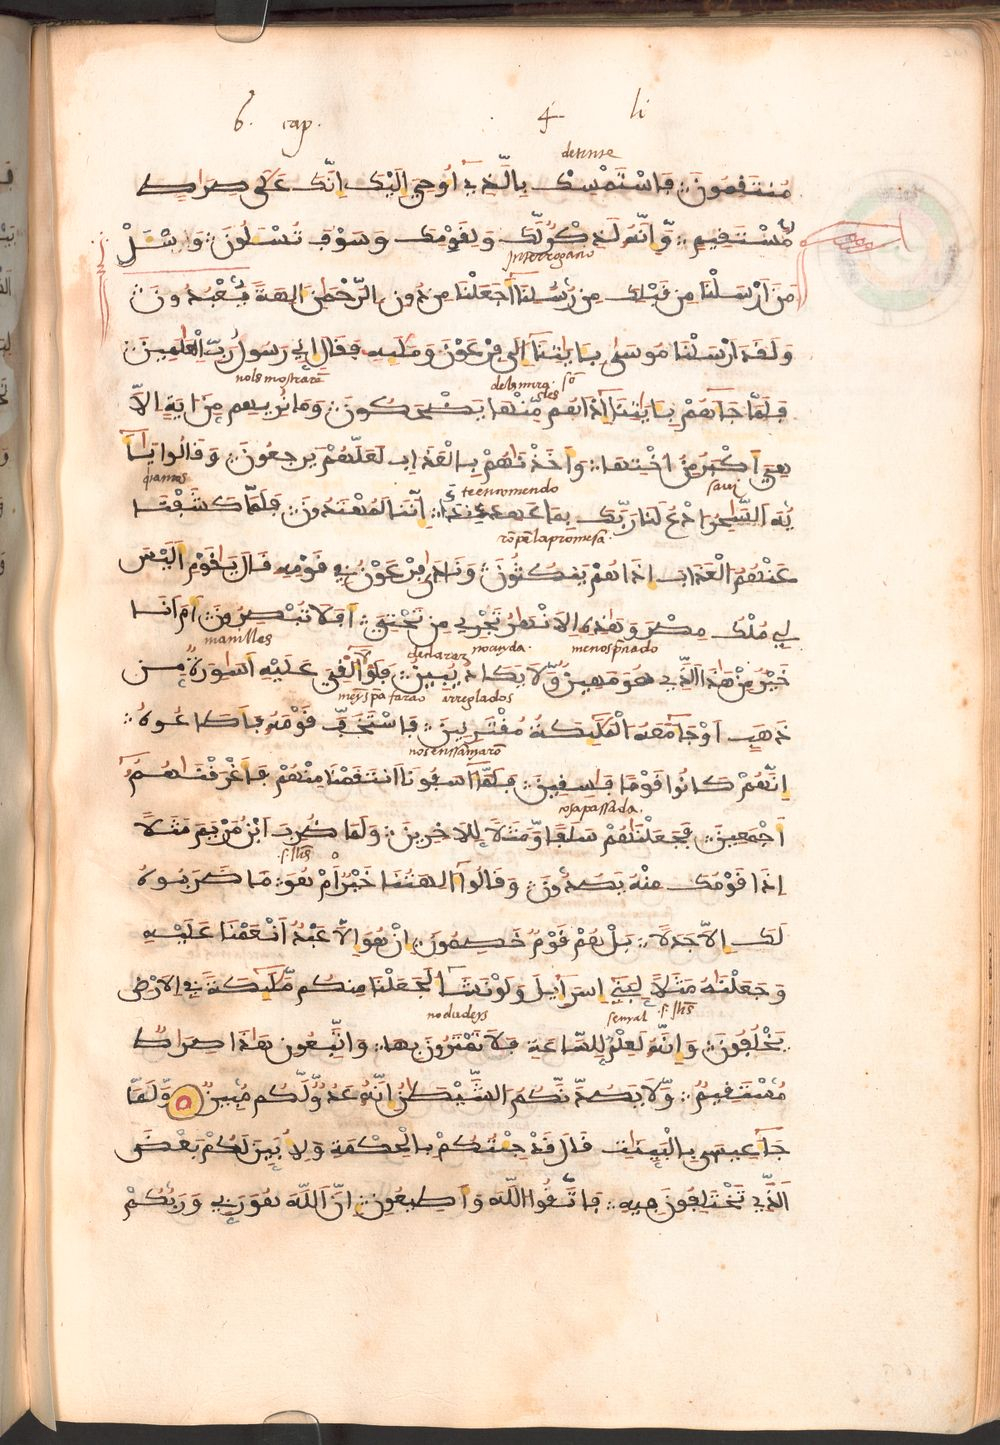 6. cap. 4 li
detente
مُّنتَفِمُونَ فَاسْتَمْسِكْ بِالَّذِي أُوحِيَ إِلَيْكَ إِنَّكَ عَلَىٰ صِرَاطٍ
مُّسْتَقِيمٍ وَإِنَّهُ لَذِكْرٌ لَّكَ وَلِقَوْمِكَ وَسَوْفَ تُسْـَٔلُونَ وَسْـَٔلْ
interrogatio
مَنْ أَرْسَلْنَا مِن قَبْلِكَ مِن رُّسُلِنَا أَجَعَلْنَا مِن دُونِ الرَّحْمَٰنِ ءَالِهَةً يُعْبَدُونَ
وَلَقَدْ أَرْسَلْنَا مُوسَىٰ بِـَٔايَٰتِنَا إِلَىٰ فِرْعَوْنَ وَمَلَإِيهِ فَقَالَ إِنِّي رَسُولُ رَبِّ الْعَٰلَمِينَ
nols mostrarē
فَلَمَّا جَآءَهُم بِـَٔايَٰتِنَآ إِذَا هُم مِّنْهَا يَضْحَكُونَ وَمَا نُرِيهِم مِّنْ ءَايَةٍ إِلَّا
هِيَ أَكْبَرُ مِنْ أُخْتِهَا وَأَخَذْنَٰهُم بِالْعَذَابِ لَعَلَّهُمْ يَرْجِعُونَ وَقَالُوا يَٰٓأَ
te encomendo
يُّهَ السَّٰحِرُ ادْعُ لَنَا رَبَّكَ بِمَا عَهِدَ عِندَكَ إِنَّنَا لَمُهْتَدُونَ فَلَمَّا كَشَفْنَا
rōpē la promesa.
عَنْهُمُ الْعَذَابَ إِذَا هُمْ يَنكُثُونَ وَنَادَىٰ فِرْعَوْنُ فِي قَوْمِهِ قَالَ يَٰقَوْمِ أَلَيْسَ
لِي مُلْكُ مِصْرَ وَهَٰذِهِ الْأَنْهَٰرُ تَجْرِي مِن تَحْتِيَ أَفَلَا تُبْصِرُونَ أَمْ أَنَا
manilles declarar no anda. menospriado
خَيْرٌ مِّنْ هَٰذَا الَّذِي هُوَ مَهِينٌ وَّلَا يَكَادُ يُبِينُ فَلَوْلَآ أُلْقِيَ عَلَيْهِ أَسَٰوِرَةٌ مِّن
arreglados
ذَهَبٍ أَوْ جَآءَ مَعَهُ الْمَلَٰٓئِكَةُ مُقْتَرِنِينَ فَاسْتَخَفَّ قَوْمَهُ فَأَطَاعُوهُ
إِنَّهُمْ كَانُوا قَوْمًا فَٰسِقِينَ فَلَمَّآ ءَاسَفُونَا انتَقَمْنَا مِنْهُمْ فَأَغْرَقْنَٰهُمُ
cosa passada.
أَجْمَعِينَ فَجَعَلْنَٰهُمْ سَلَفًا وَّمَثَلًا لِّلْءَاخِرِينَ وَلَمَّا ضُرِبَ ابْنُ مَرْيَمَ مَثَلًا
إِذَا قَوْمُكَ مِنْهُ يَصُدُّونَ وَقَالُوا ءَأَٰلِهَتُنَا خَيْرٌ أَمْ هُوَ مَا ضَرَبُوهُ
لَكَ إِلَّا جَدَلًا بَلْ هُمْ قَوْمٌ خَصِمُونَ إِنْ هُوَ إِلَّا عَبْدٌ أَنْعَمْنَا عَلَيْهِ
وَجَعَلْنَٰهُ مَثَلًا لِّبَنِي إِسْرَآءِيلَ وَلَوْ نَشَآءُ لَجَعَلْنَا مِنكُم مَّلَٰٓئِكَةً فِي الْأَرْضِ
no dudeys senyal
يَخْلُفُونَ وَإِنَّهُ لَعِلْمٌ لِّلسَّاعَةِ فَلَا تَمْتَرُنَّ بِهَا وَاتَّبِعُونِ هَٰذَا صِرَٰطٌ
مُّسْتَقِيمٌ وَلَا يَصُدَّنَّكُمُ الشَّيْطَٰنُ إِنَّهُ لَكُمْ عَدُوٌّ مُّبِينٌ وَلَمَّا
جَآءَ عِيسَىٰ بِالْبَيِّنَٰتِ قَالَ قَدْ جِئْتُكُم بِالْحِكْمَةِ وَلِأُبَيِّنَ لَكُم بَعْضَ
الَّذِي تَخْتَلِفُونَ فِيهِ فَاتَّقُوا اللَّهَ وَأَطِيعُونِ إِنَّ اللَّهَ هُوَ رَبِّي وَرَبُّكُمْ